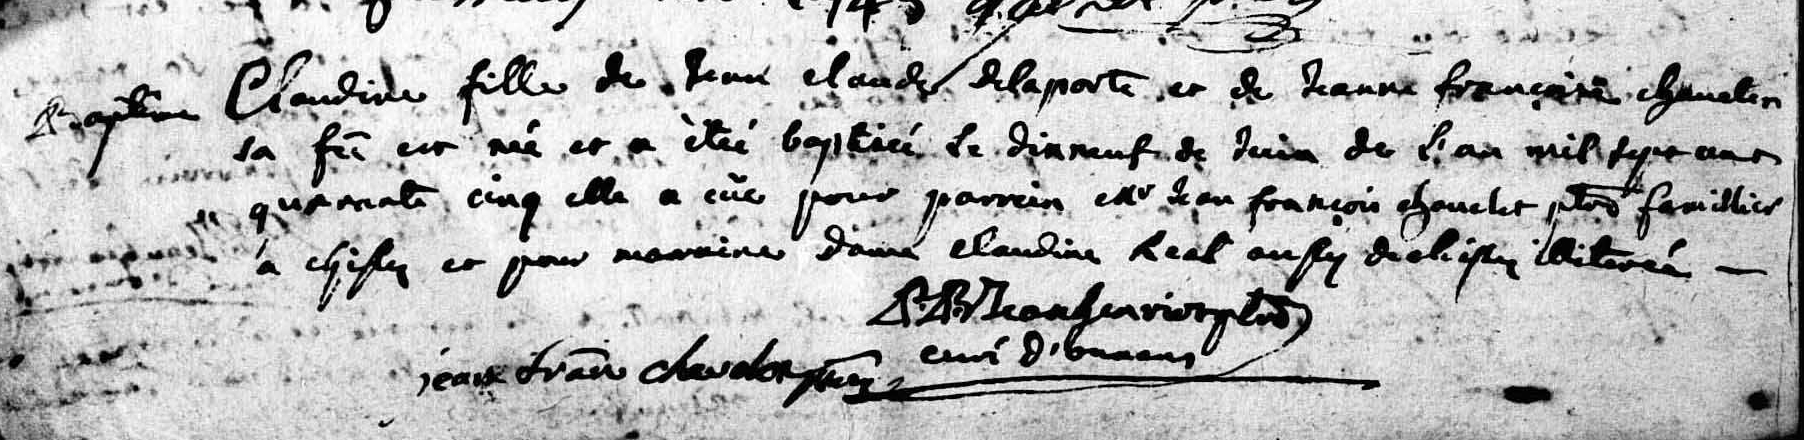 1745
Baptême Claudine fille de Jean claude delaporte et de Jeanne françoise chavelet
sa fẽe est née et a étéé baptiséé Le dixneuf de Juin de L'an mil sept cent
quarante cinq elle a eüe pour parrein mr Jean françois chavelet ptre familier
a chissey et pour marraine dame claudine Real aussy de chissey illiterée —
Jeanhenriot ptre
curé d'ounans
jean fran chavelet